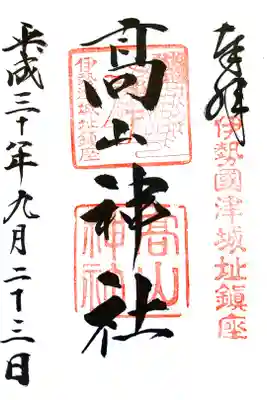 奉拝
伊勢國津城址鎮座
高山神社
伊勢津城址鎮座
高山
神社
平成三十年九月二十三日